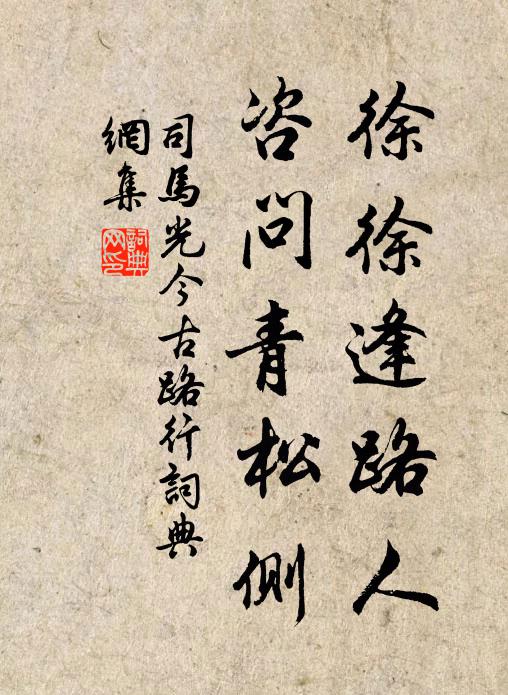 徐徐逢路人
咨问青松側
司馬光今古路行詞典
網集
詞典
网印